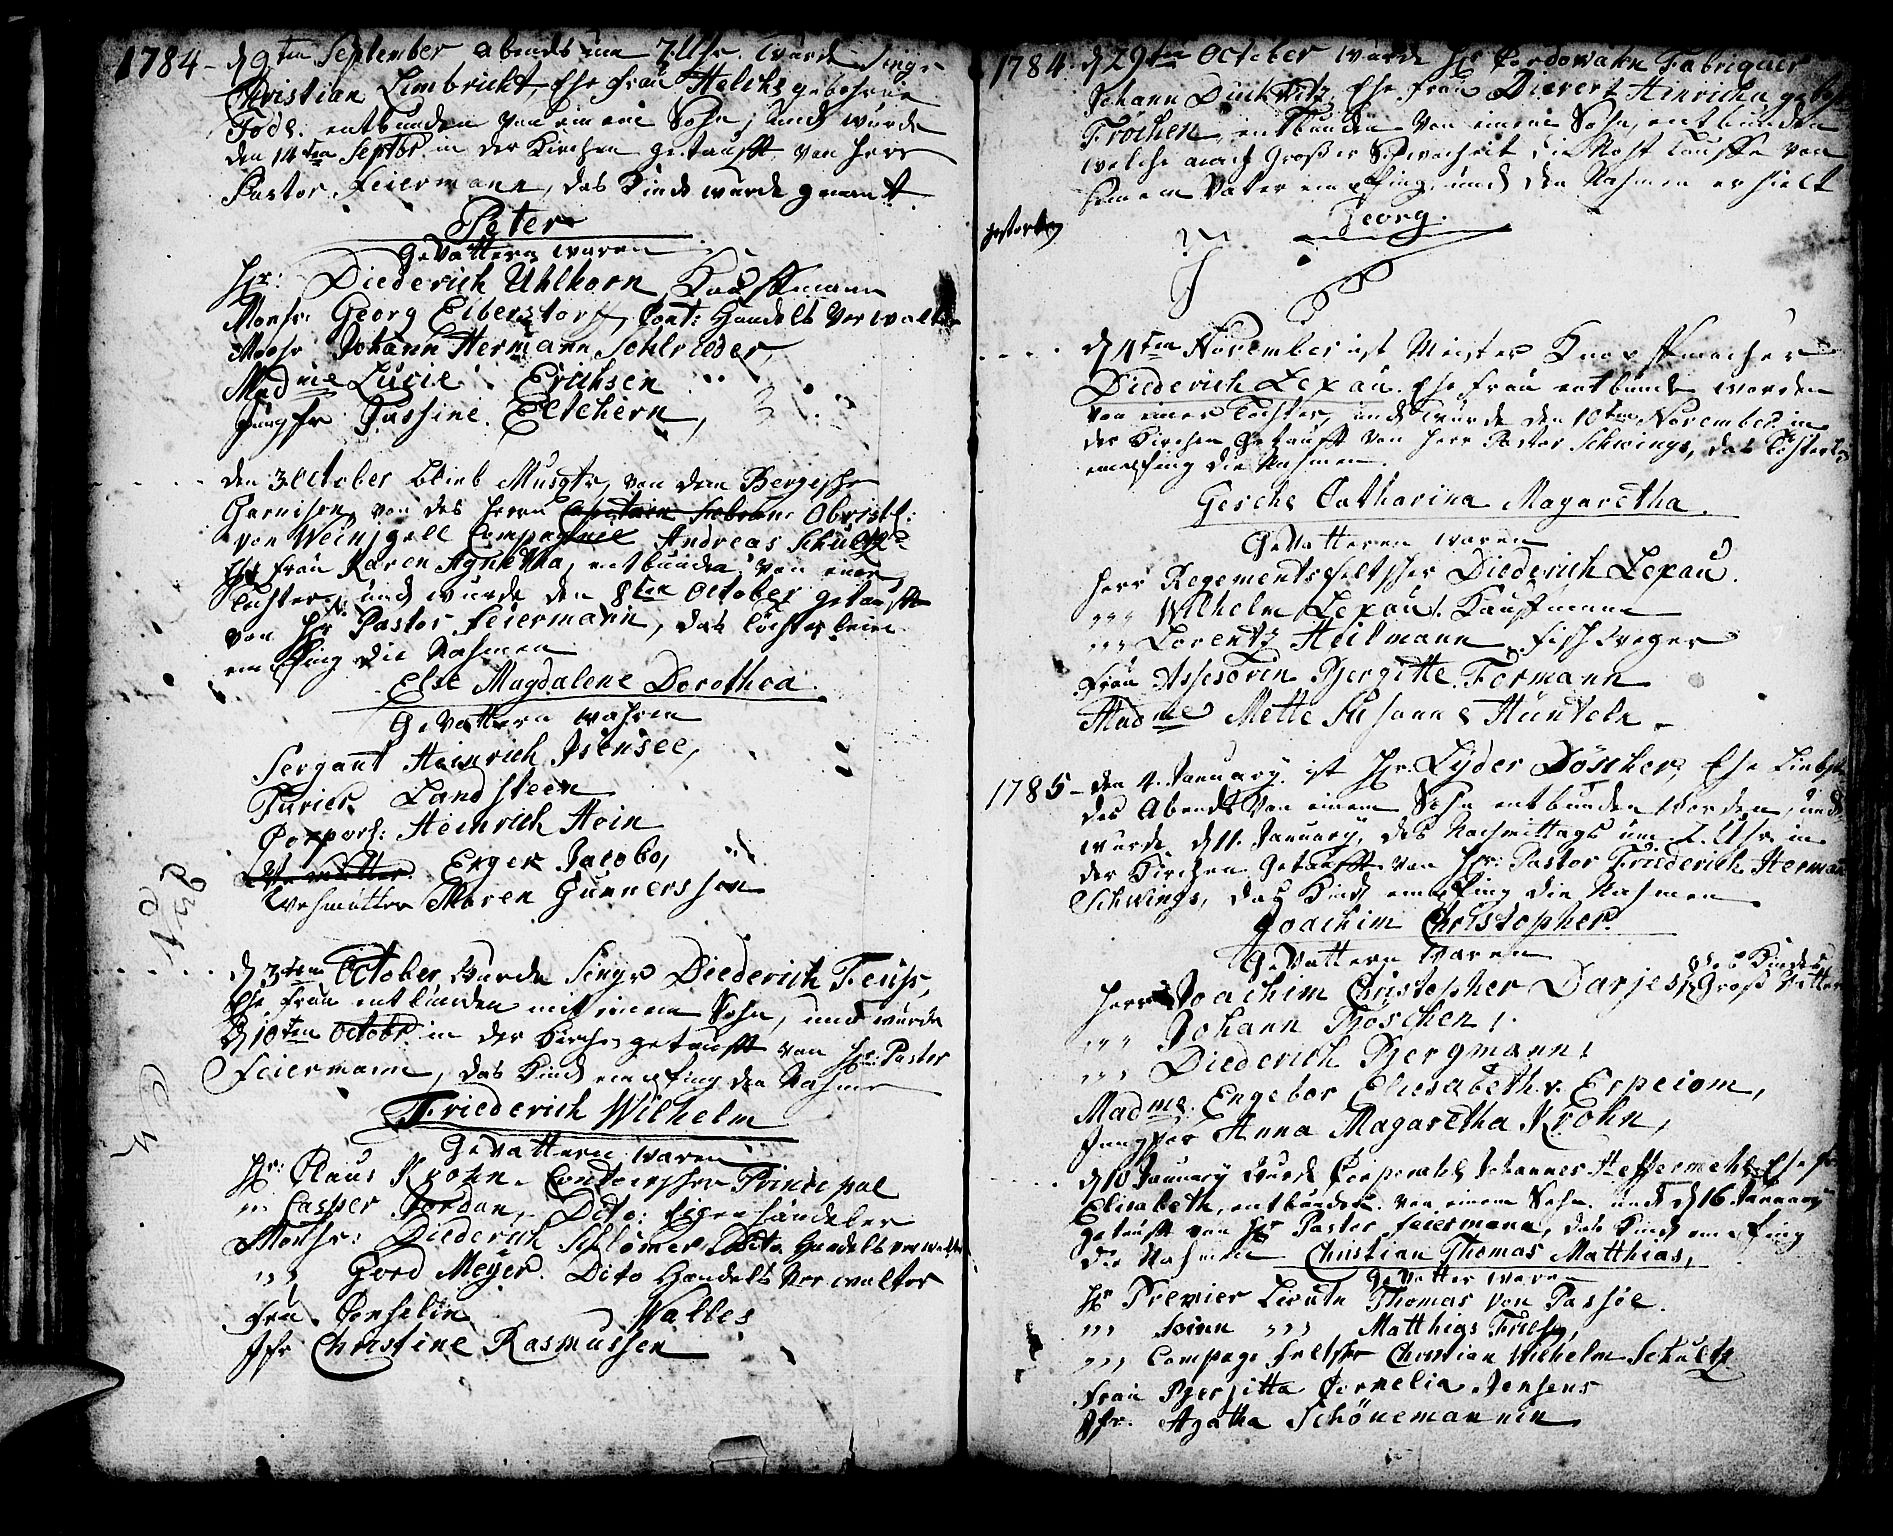 1784 - d 9ten September Abends um 7 Uhr wurde Singr
Christian Limbricht, Ehe Frau Helche gebohrne
Tode. entbunden von einem Sohn, und wurde
den 14ten Septbr. in der Kirchen getaufft von Herr
Pastor Feiermann, das Kind wurde genant
Peter
Gevattern waren
Hr: Diederich Uhlhorn Kauffmann
Monsr. Georg Eiberstorff, Cont: Handels Verwalter
Monsr Johann Hermann Schlrieder,
Madme Lucie Erichsen
Jungfr Tassine Eltchern,
den 3 October blieb Musqtr. von dem Bergische
Garnison, von des Herrn Capitain Obristl:
von Weinigell Compagnie Andreas Schultz
Ehe Frau Karen Agnetha, entbunden von einer
Tochter, und wurde den 8ten October getaufft
von Hr Pastor Feiermann, das Töchterlein
empfing die Nahmen
Else Magdalene Dorothea
Gevattern wahren
Sergant Heinrich Isensee,
Furier Landsteen
Corporl: Heinrich Hein
Enger Jacobs,
Wehmutter Maren Gunnerssen
d 3ten October wurde Singr Diederich Feuss,
Ehe Frau entbunden mit einem Sohn, und wurde
d 10ten Octobr in der Kirchen getaufft von Hr: Pastor
Feiermann, das Kind empfing den Nahme
Friederich Wilhelm
Gevattern waren
Hr: Claus Krohn, Contoirscher Principal
" Casper Jordan, Dito:
Monsr: Diederich Schlömer Dito Handels verwalter
" " Gerd Meyer. Dito Handels Verwalter
Frau Cornelia Valles
Jfr Christine Rasmussen
1784. d 29ten October wurde Hr Cordowahn Fabriquer
Johann Duckwitz, Ehe Frau Dievert Hinrichn geb
Frochen, entbunden von einem Sohn, entbunden
welche nach Großer Schwachheit die Noht Tauffe von
seinem Vater empfing, und den Nahmen erhielt
gestorben
Georg.
d 4ten November ist Meister Knopffmacher
Diederich Lexau Ehe Frau entbunden worden
von einer Tochter, und wurde den 10ten November in
der Kirchen getaufft von Herr Pastor Schwings, das Töchterlein
empfing die Nahmen.
Gesche Catharina Magaretha
Gevatteren waren
Herr Regementsfeltscher Diederich Lexau.
" " " Wilhelm Lexau, Kauffmann
" " " Lorentz Heilmann
Frau Assesorin Bergitte Formann
Madme Mette Susann E Hünteln
1785 - den 4. January ist Hr. Lyder Döscher, Ehe Liebste
des Abends von einem Sohn entbunden worden, und
wurde d 11. January des Nachmittags um 2 Uhr in
der Kirchen getaufft von Hr: Pastor Friederich Herman
Schwings, das Kind empfing die Nahmen
Joachim Christopher.
Gevattern waren
Herr Joachim Christopher Darjes, des Kindes Groß Vatter
" " " Johann Töschen,
" " " Diederich Bergmann,
Madme. Engebor Eliesabeth v. Erpeiom,
Jungfer Anna Magaretha Krohn,
d 10 January wurde Corporahl Johannes Heffermehl Ehe Fr
Elisabeth, entbunden von einem Sohn und d 16 January
getaufft von Hr Pastor Feiermann, das Kind empfing
die Nahmen Christian Thomas Matthias,
Gevatter waren
Hr Premier Lieutn Thomas von Passoe.
" " " " " " Matthias Friese,
" " " Compagn Feltscher Christian Wilhelm Schultz
Frau Bergitta Cornelia Jensens
Jfr. Agatha Schönemannen